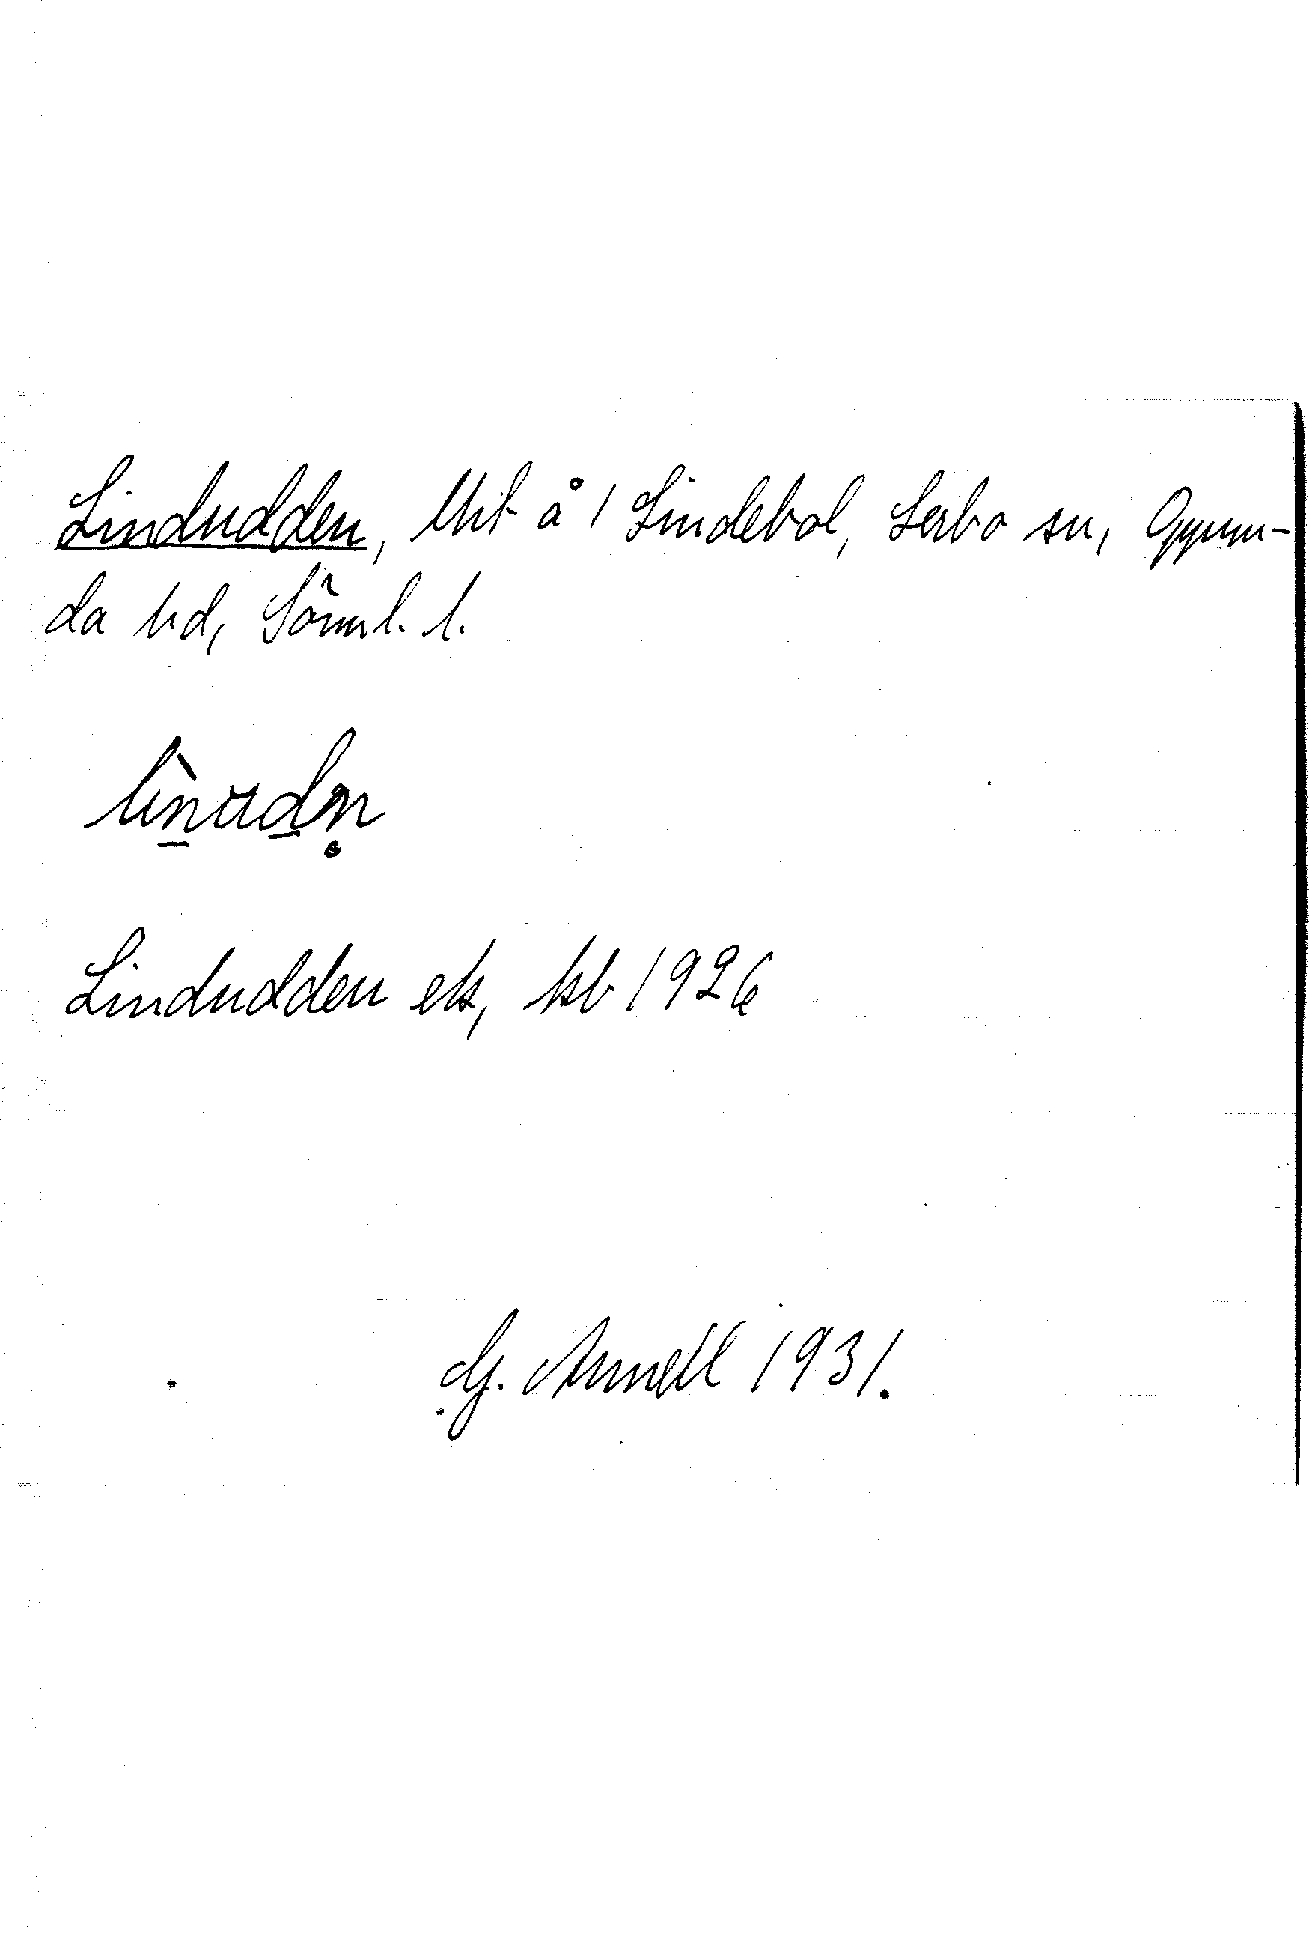 Lindudden, lht å 1 Lindebol, Lerbo sn, Oppun-
da hd, Sörml. l.
lìnudn̥
Lindudden ek, kb 1926
G. Annell 1931.